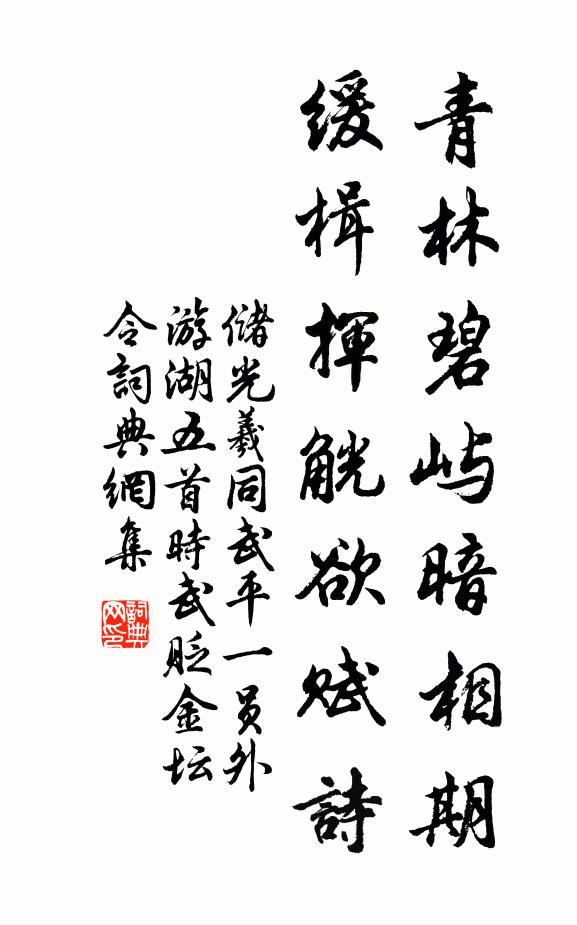 青林碧屿暗相期
缓楫揮觥欲赋詩
储光羲同武平一員外
游湖五首時武贬金坛
令詞典網集
詞典网印